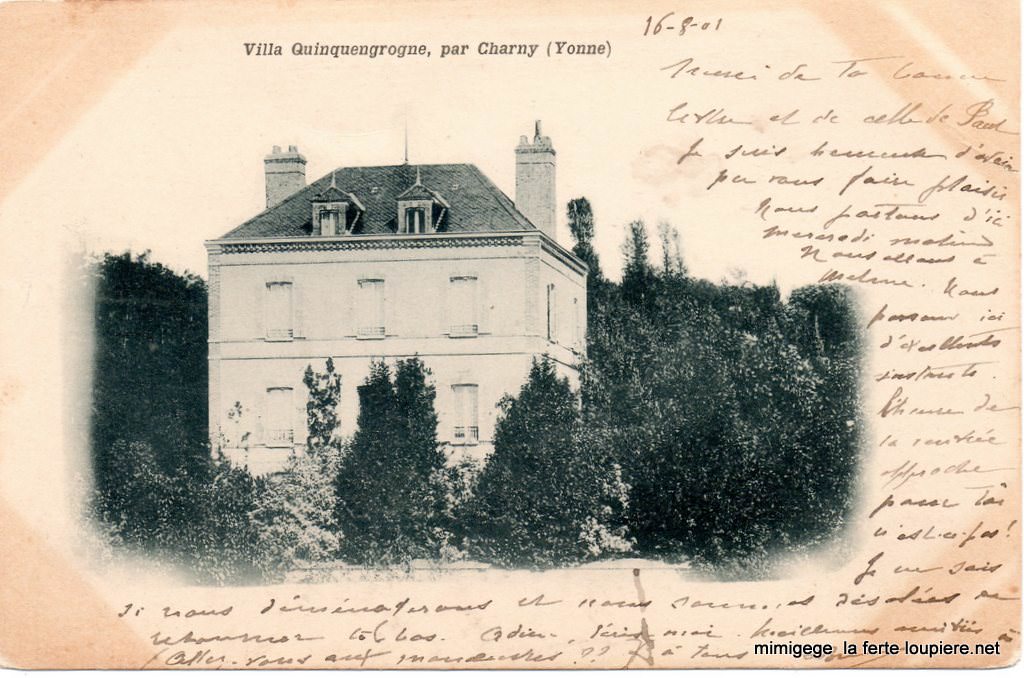 16-8-01
Villa Quinquengrogne, par Charny (Yonne)
Merci de ta bonne
lettre et de celle de Paul
Je suis heureuse d'avoir
pu vous faire plaisir
Nous partons d'ici
mercredi matin
Nous allons à
Melun. Nous
passons ici
d'excellents
instants.
L'heure de
la rentrée
approche
pour toi
n'est-ce-pas!
Je ne sais
si nous déménagerons et nous sommes désolées de
retourner là-bas. Adieu, écris-moi. Meilleures amitiés à
Allez-vous aux manœuvres ?? à tous
mimigege la ferte loupiere.net